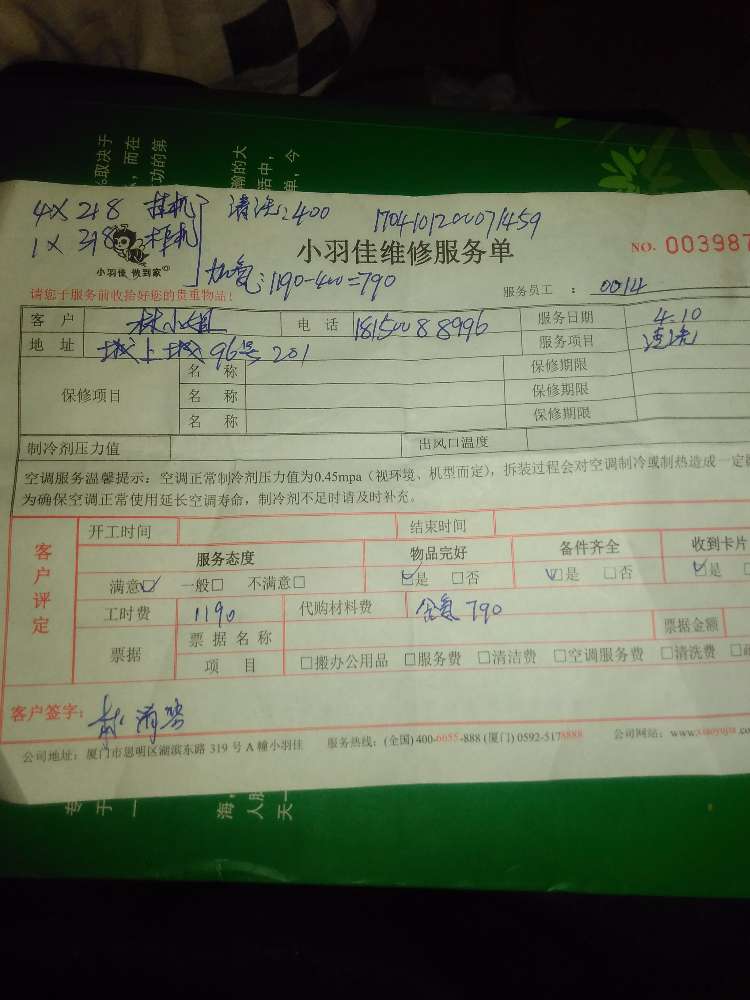 4X 218 挂机 清洗:400 1704101200071459
1X 318 柜机
小羽佳 做到家
加氟:1190-400=790
小羽佳维修服务单
NO. 003987
请您于服务前收拾好您的贵重物品!
服务员工 : 0014
客 户 林小姐 电 话 18150088996 服务日期 4.10
地 址 城上城96号201 服务项目 清洗
保修项目
名 称 保修期限
名 称 保修期限
名 称 保修期限
制冷剂压力值 出风口温度
空调服务温馨提示:空调正常制冷剂压力值为0.45mpa(视环境、机型而定),拆装过程会对空调制冷或制热造成一定
为确保空调正常使用延长空调寿命,制冷剂不足时请及时补充。
客户评定
开工时间 结束时间
服务态度 物品完好 备件齐全 收到卡片
满意☑ 一般□ 不满意□ ☑是 □否 ☑是 □否 ☑是
工时费 1190 代购材料费 含氟790
票据
票 据 名 称 票据金额
项 目 □搬办公用品 □服务费 □清洁费 □空调服务费 □清洗费
客户签字:
公司地址:厦门市思明区湖滨东路 319 号 A 幢小羽佳 服务热线:(全国)400-6655-888 (厦门) 0592-5178888 公司网站:www.xiaoyujia.co